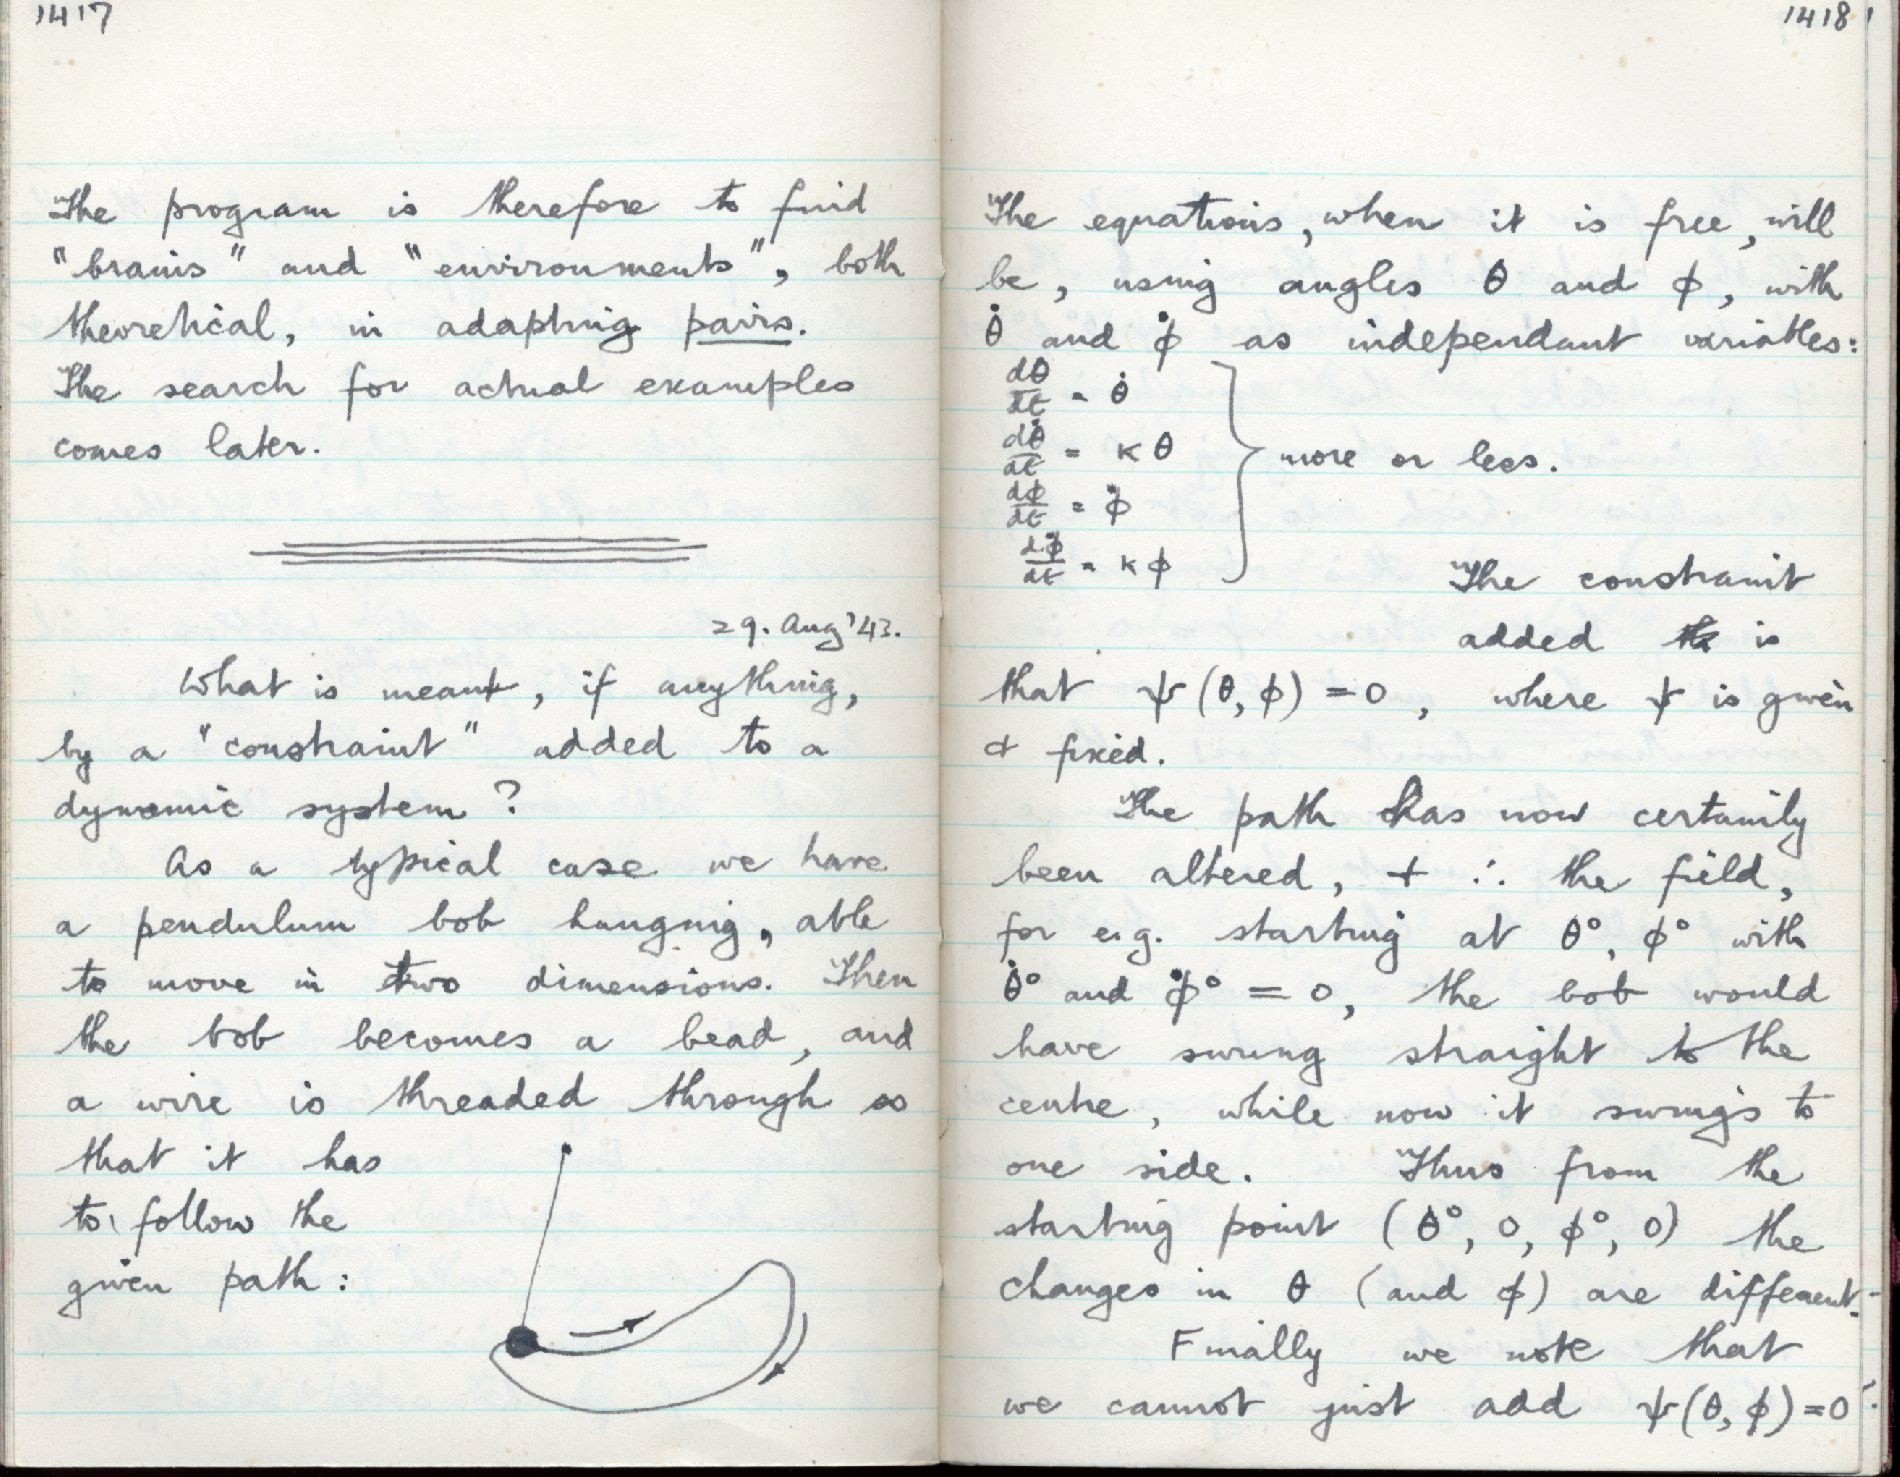 1417
The program is therefore to find
"brains" and "environments", both
theoretical, in adapting pairs.
The search for actual examples
comes later.
29. Aug '43.
What is meant, if anything,
by a "constraint" added to a
dynamic system?
As a typical case we have
a pendulum bob hanging, able
to move in two dimensions. Then
the bob becomes a bead, and
a wire is threaded through so
that it has
to follow the
given path:
1418
The equations, when it is free, will
be, using angles θ and ϕ, with
θ̇ and ϕ̇ as independant variables:
dθ/dt = θ̇
dθ̇/dt = κθ
dϕ/dt = ϕ̇
dϕ̇/dt = κϕ
more or less.
The constraint
added is
that ψ(θ, ϕ) = 0, where ψ is given
+ fixed.
The path has now certainly
been altered, + ∴ the field,
for e.g. starting at θ°, ϕ° with
θ̇° and ϕ̇° = 0, the bob would
have swung straight to the
centre, while now it swings to
one side. Thus from the
starting point (θ°, 0, ϕ°, 0) the
changes in θ (and ϕ) are different.
Finally we note that
we cannot just add ψ(θ, ϕ) = 0